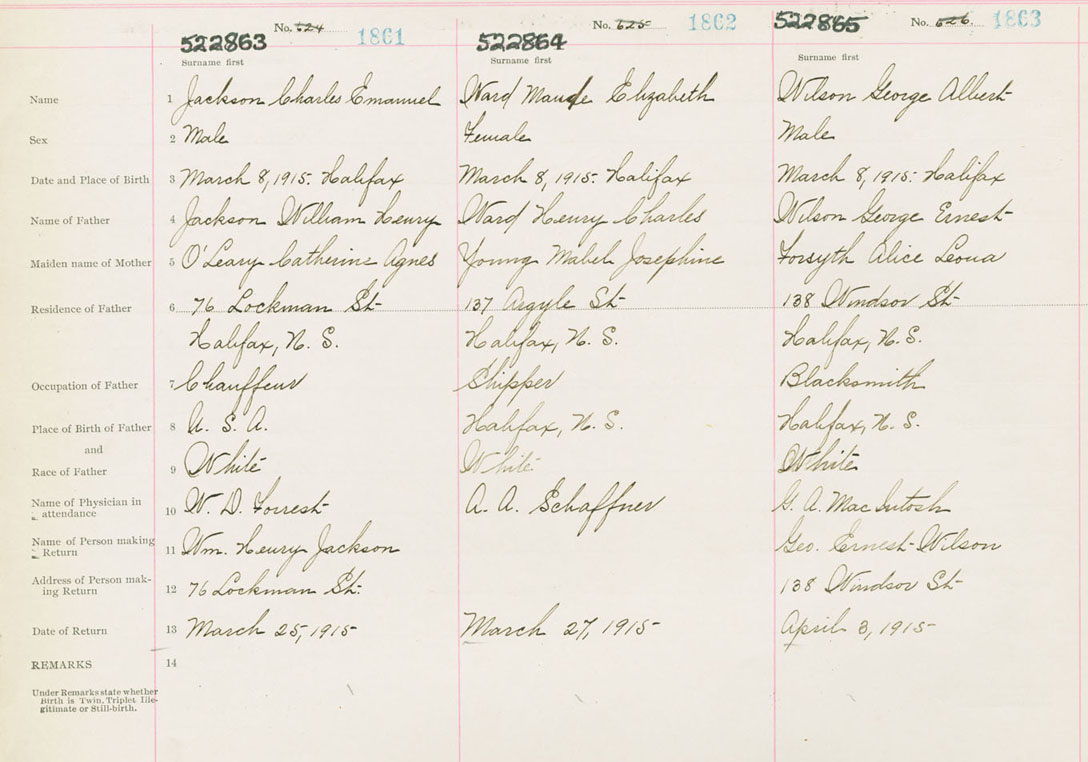 No. 624 1861 No. 625 1862 No. 626. 1863
522863 522864 522865
Surname first Surname first Surname first
Name 1 Jackson Charles Emanuel Ward Maude Elizabeth Wilson George Albert
Sex 2 Male Female Male
Date and Place of Birth 3 March 8, 1915. Halifax March 8, 1915. Halifax March 8, 1915. Halifax
Name of Father 4 Jackson William Henry Ward Henry Charles Wilson George Ernest
Maiden name of Mother 5 O'Leary Catherine Agnes Young Mabel Josephine Forsyth Alice Leona
Residence of Father 6 76 Lockman St 137 Argyle St 138 Windsor St
Halifax, N. S. Halifax, N. S. Halifax, N. S.
Occupation of Father 7 Chauffeur Shipper Blacksmith
Place of Birth of Father 8 U. S. A. Halifax, N. S. Halifax, N. S.
and
Race of Father 9 White White White
Name of Physician in
attendance 10 W. D. Forrest A. A. Schaffner G. A. MacIntosh
Name of Person making
Return 11 Wm. Henry Jackson Geo. Ernest Wilson
Address of Person mak-
ing Return 12 76 Lockman St. 138 Windsor St
Date of Return 13 March 25, 1915 March 27, 1915 April 3, 1915
REMARKS 14
Under Remarks state whether
Birth is Twin, Triplet Ille-
gitimate or Still-birth.